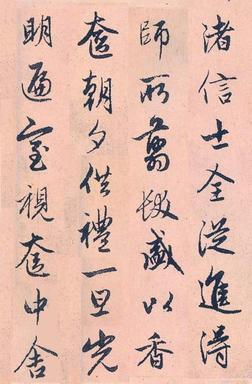 渚信士全從進得
師所翦髮盛以香
奩朝夕供禮一旦光
明遍室視奩中舍